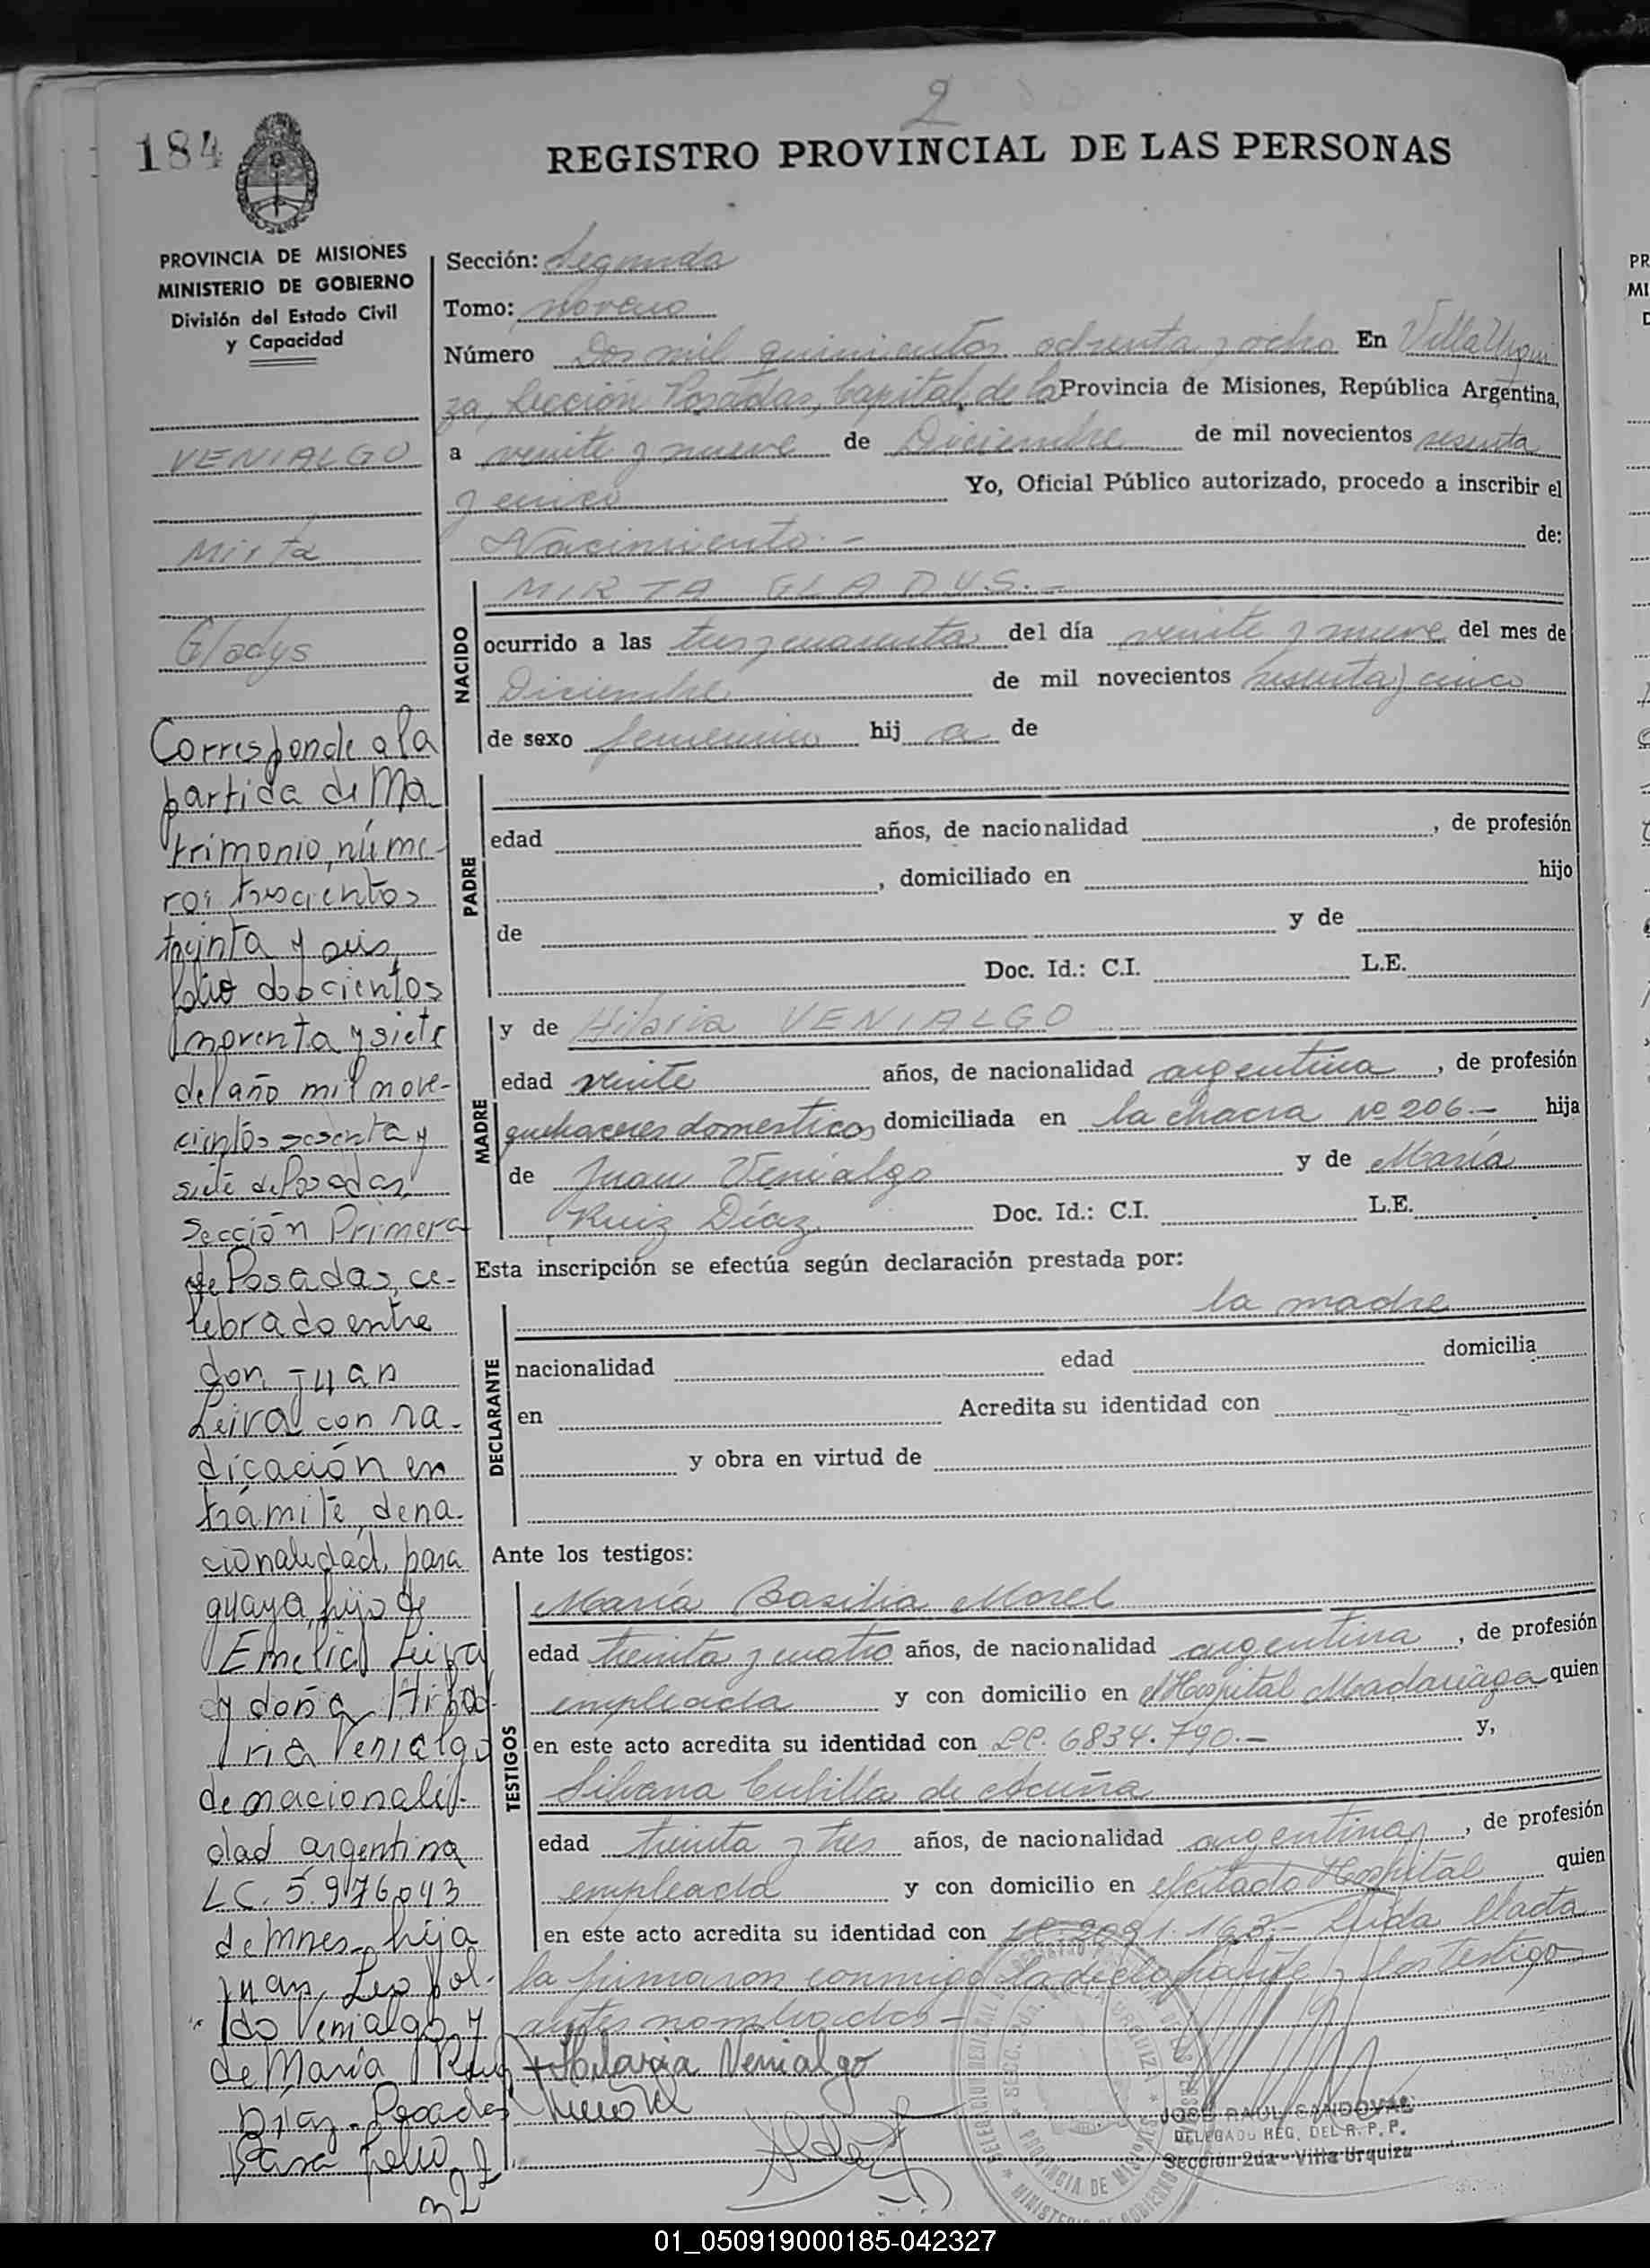 2
184
REGISTRO PROVINCIAL DE LAS PERSONAS
PROVINCIA DE MISIONES
MINISTERIO DE GOBIERNO
División del Estado Civil
y Capacidad
VENIALGO
Mirta
Gladys
Corresponde a la
partida de Ma
trimonio, núme
ros trescientos
treinta y seis,
folio doscientos
noventa y siete
del año mil nove-
cientos sesenta y
siete de Posadas,
Sección Primera
de Posadas, ce-
lebrado entre
don Juan
Leiva con ra-
dicación en
trámite, de na-
cionalidad para
guaya, hijo de
Emelia Leiva
y doña Hila
ria Venialgo
de nacionali-
dad argentina
LC. 5.976043
de mnes. hija
Juan Leopol-
do Venialgo y
de María Ruiz
Díaz. Posadas
Pasa folio
322
Sección: Segunda
Tomo: noveno
Número Dos mil quinientos ochenta y ocho En Villa Urqui
za, Sección Posadas, Capital de la Provincia de Misiones, República Argentina,
a veinte y nueve de Diciembre de mil novecientos sesenta
y cinco Yo, Oficial Público autorizado, procedo a inscribir el
Nacimiento.- de:
NACIDO
MIRTA GLADYS.-
ocurrido a las tres y cuarenta del día veinte y nueve del mes de
Diciembre de mil novecientos sesenta y cinco
de sexo femenino hij a de
PADRE
edad años, de nacionalidad , de profesión
, domiciliado en hijo
de y de
Doc. Id.: C.I. L.E.
MADRE
y de Hilaria VENIALGO
edad veinte años, de nacionalidad argentina , de profesión
quehaceres domesticos domiciliada en la chacra Nº 206.- hija
de Juan Venialgo y de María
Ruiz Díaz Doc. Id.: C.I. L.E.
Esta inscripción se efectúa según declaración prestada por:
DECLARANTE
la madre
nacionalidad edad domicilia
en Acredita su identidad con
y obra en virtud de
Ante los testigos:
TESTIGOS
María Basilia Morel
edad treinta y cuatro años, de nacionalidad argentina , de profesión
empleada y con domicilio en el Hospital Madariaga quien
en este acto acredita su identidad con LC. 6834.790.- y,
Silvana Cubilla de Acuña
edad treinta y tres años, de nacionalidad argentina , de profesión
empleada y con domicilio en el citado Hospital quien
en este acto acredita su identidad con 163.- Leída el acta
la firmaron conmigo la declarante y los testigo
antes nombrados.-
Hilaria Venialgo
JOSE RAUL SANDOVAL
DELEGADO REG. DEL R. P. P.
Sección 2da - Villa Urquiza
PR
MI
01_050919000185-042327